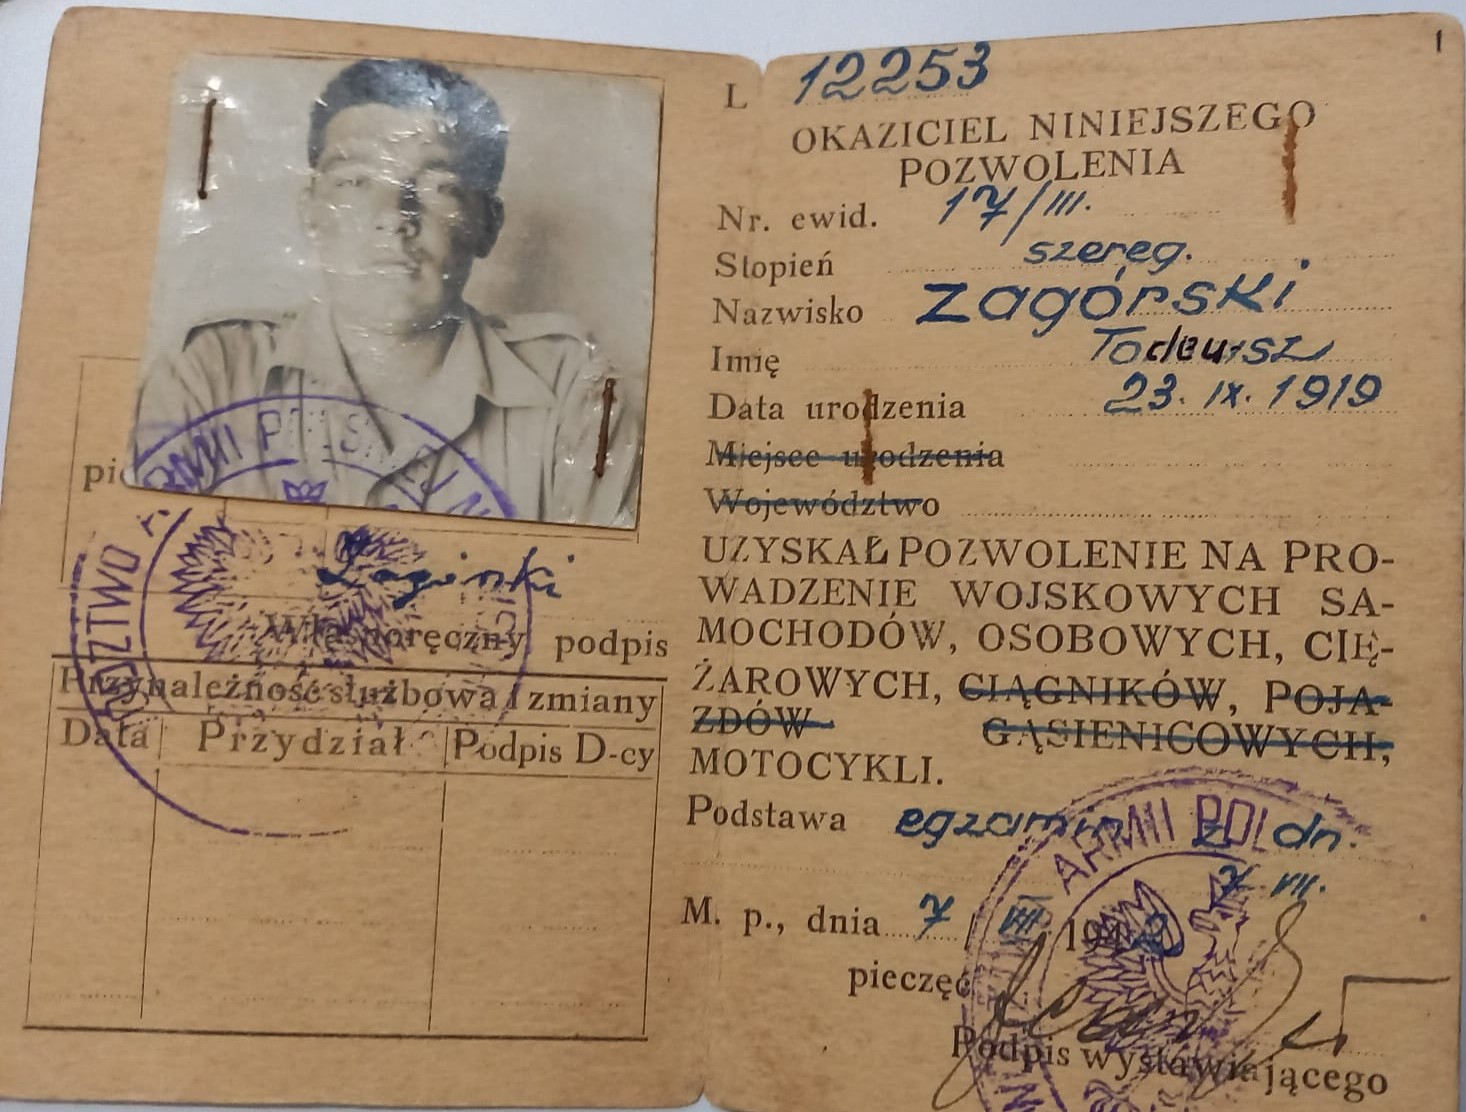 pie
ARMII POLSKIEJ N
DZTWO A
Zagórski
Własnoręczny podpis
Przynależność służbowa i zmiany
Data Przydział Podpis D-cy
1
L 12253
OKAZICIEL NINIEJSZEGO
POZWOLENIA
Nr. ewid. 17/III.
Stopień szereg.
Nazwisko Zagórski
Imię Tadeusz
Data urodzenia 23. IX. 1919
Miejsce urodzenia
Województwo
UZYSKAŁ POZWOLENIE NA PRO-
WADZENIE WOJSKOWYCH SA-
MOCHODÓW, OSOBOWYCH, CIĘ-
ŻAROWYCH, CIĄGNIKÓW, POJA-
ZDÓW GĄSIENICOWYCH,
MOTOCYKLI.
Podstawa egzamin z dn.
7 VII.
M. p., dnia 7 VII. 1942
pieczęć
ARMII POL
Podpis wystawiającego